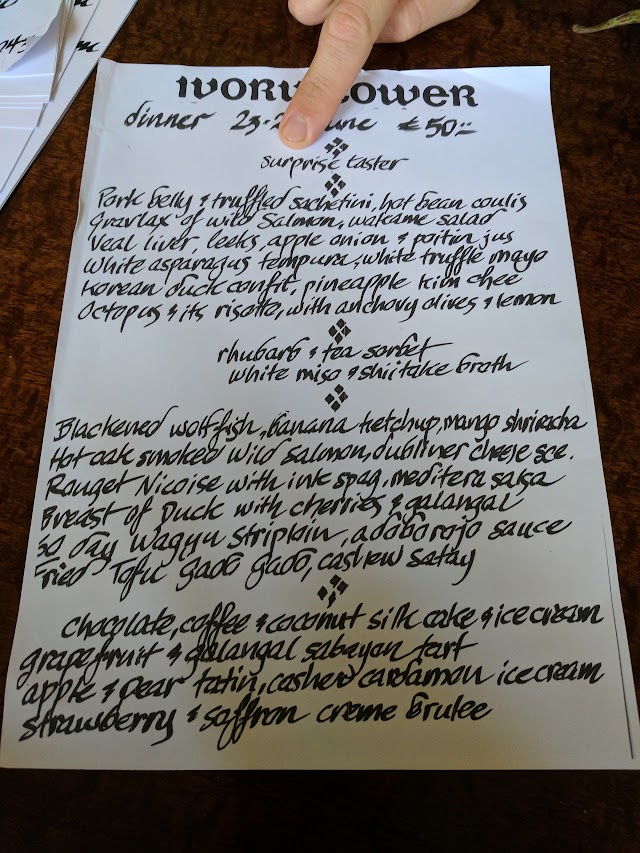 IVORY TOWER
dinner 23-2 June €50:=
surprise taster
Pork belly & truffled sachetini, hot bean coulis
Gravlax of wild Salmon, wakame salad
Veal liver, leeks, apple onion & poitin jus
White asparagus tempura, white truffle mayo
Korean duck confit, pineapple kim chee
Octopus & its risotto, with anchovy olives & lemon
rhubarb & tea sorbet
white miso & shiitake broth
Blackened wolf fish, banana ketchup, mango shriracha
Hot oak smoked wild salmon, dubliner cheese sce.
Rouget Nicoise with ink spag, meditera salsa
Breast of Duck with cherries & galangal
30 day wagyu striploin, adobo rojo sauce
Fried Tofu gado gado, cashew satay
chocolate, coffee & coconut silk cake & ice cream
grapefruit & galangal sabayon tart
apple & pear tatin, cashew cardamon ice cream
strawberry & saffron creme brulee